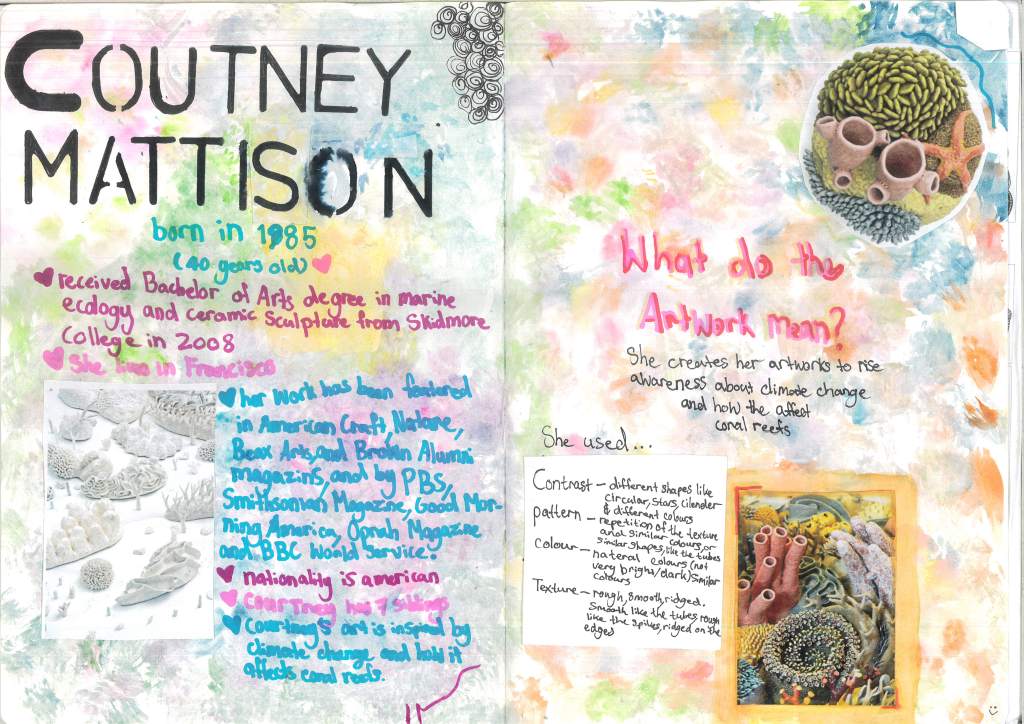 COUTNEY
MATTISON
born in 1985
(40 years old)
received Bachelor of Arts degree in marine
ecology and ceramic sculpture from Skidmore
College in 2008
She lives in Francisco
her work has been featured
in American Craft, Nature,
Beax Arts, and Brown Alumni
magazins, and by PBS,
Smithsonian Magazine, Good Mor-
ning America, Oprah Magazine
and BBC World Service.
nationality is american
Courtney has 7 siblings
Courtney's art is inspired by
climate change and how it
affects coral reefs.
What do the
Artwork mean?
She creates her artworks to rise
awareness about climate change
and how the affect
coral reefs
She used...
Contrast – different shapes like
circular, stars, cilender
& different colours
pattern – repetition of the texture
and similar colours, or
similar shapes, like the tubes
Colour – nateral colours (not
very bright/dark) similar
colours
Texture – rough, smooth, ridged.
Smooth like the tubes, rough
like the spikes, ridged on the
edges